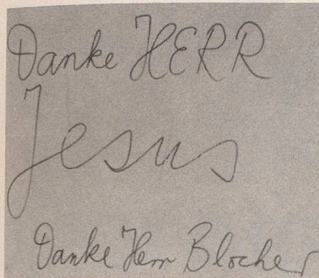 Danke HERR
Jesus
Danke Herr Blocher